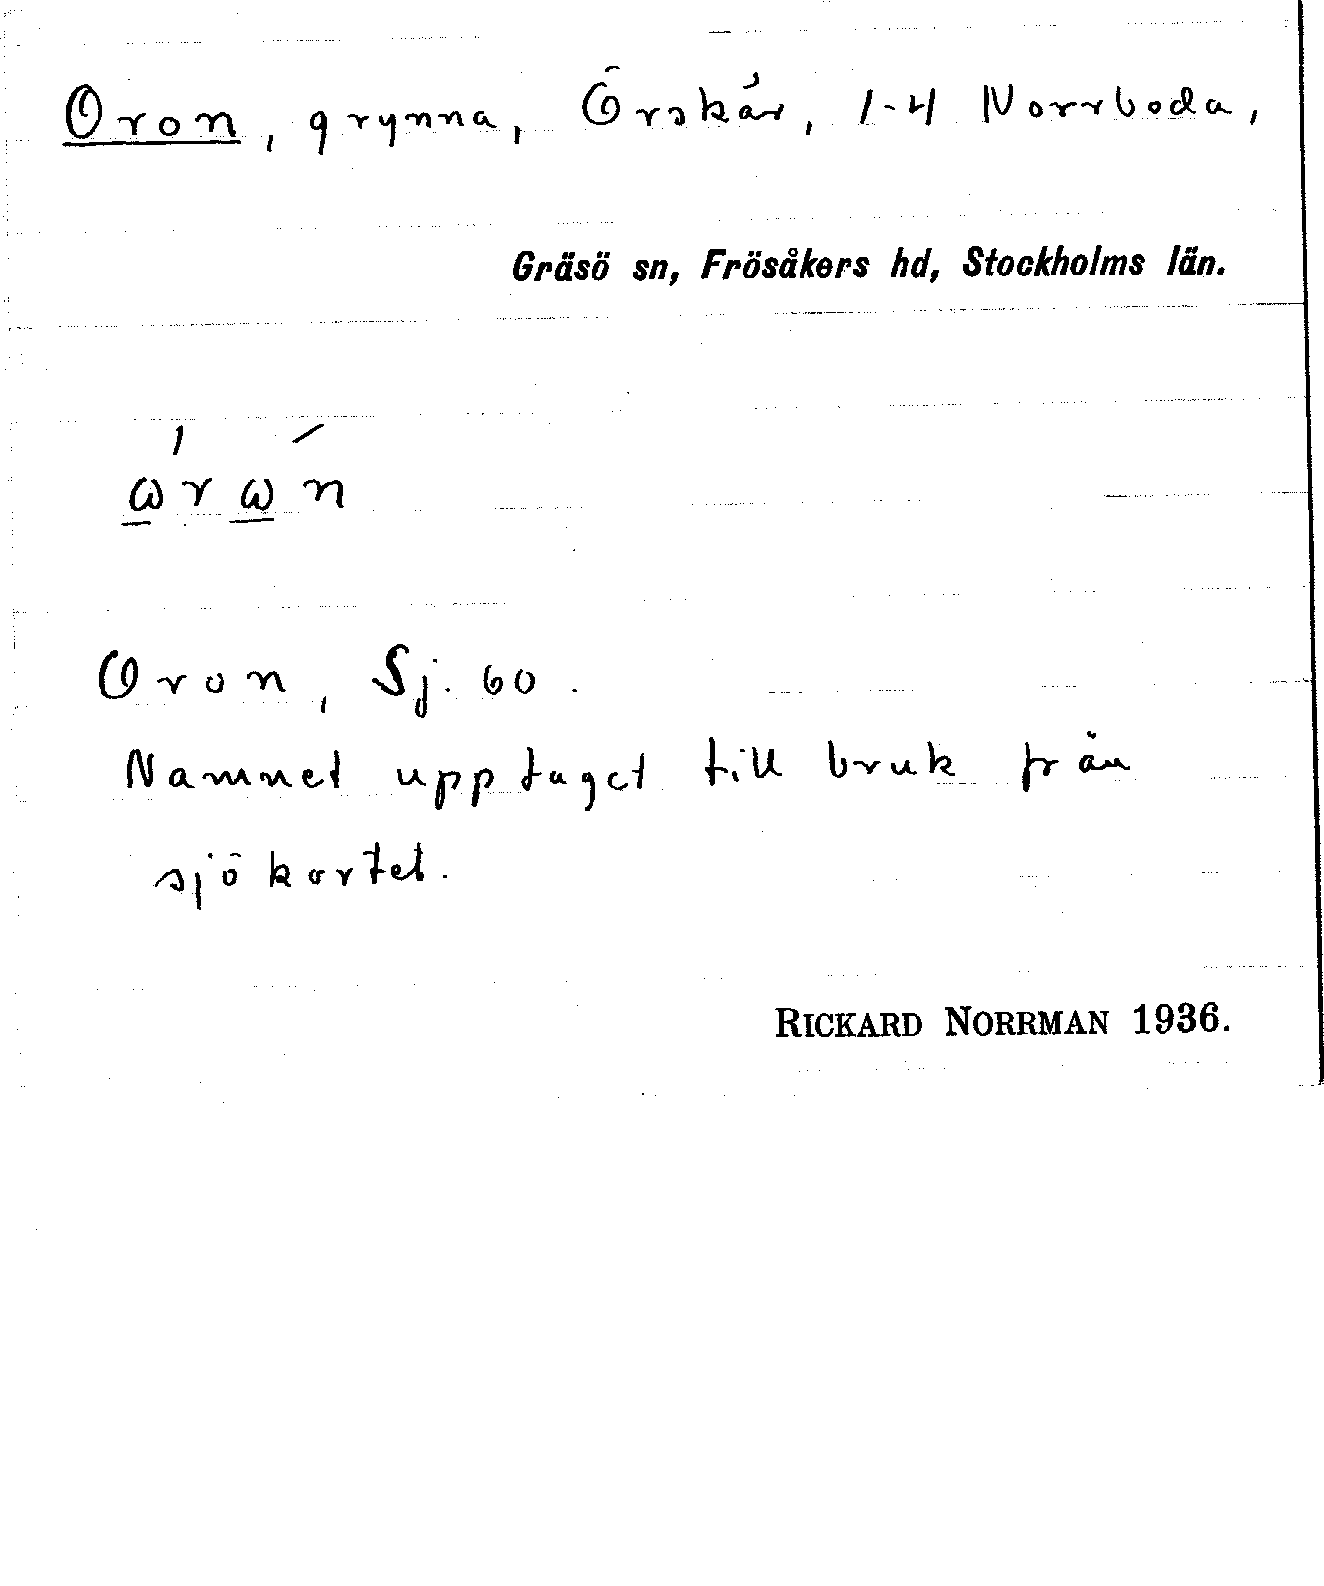 Oron, grynna, Örskär, 1-4 Norrboda,
Gräsö sn, Frösåkers hd, Stockholms län.
ώ̲rώ̲n
Oron, Sj. 60.
Namnet upptaget till bruk från
sjökortet.
RICKARD NORRMAN 1936.